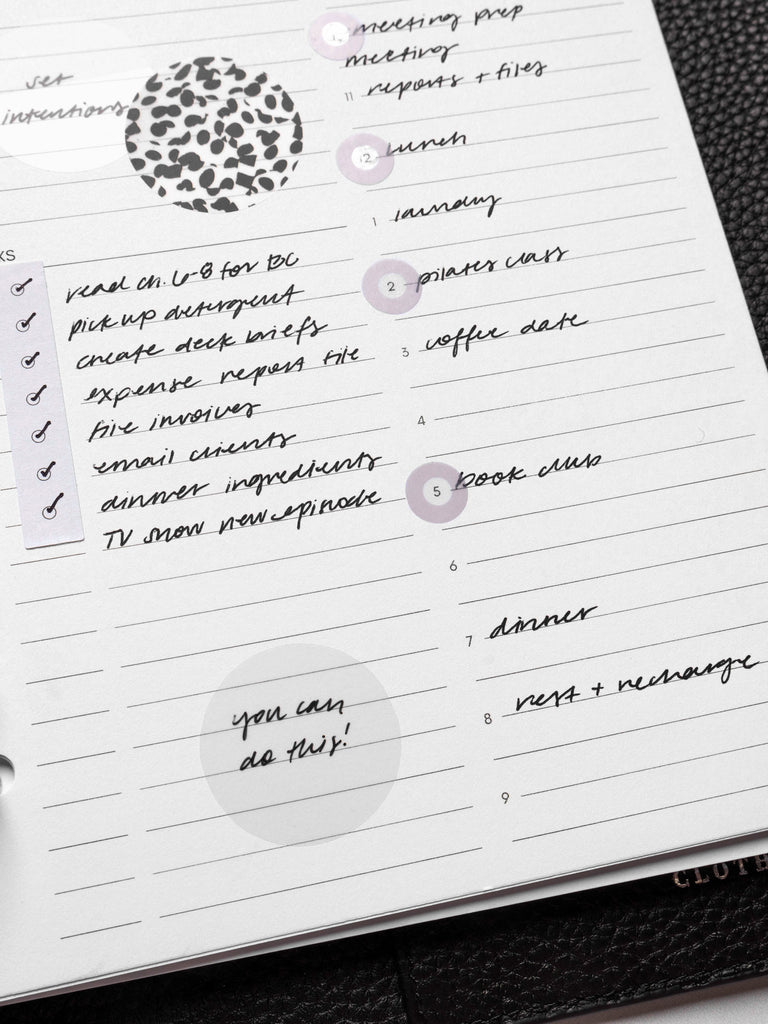 set
intentions
KS
read ch. 6-8 for BC
pick up detergent
create deck briefs
expense report file
file invoices
email clients
dinner ingredients
TV show new episode
you can
do this!
meeting prep
meeting
11 reports + files
12 lunch
1 laundry
2 pilates class
3 coffee date
4
5 book club
6
7 dinner
8 rest + recharge
9
CLOTH